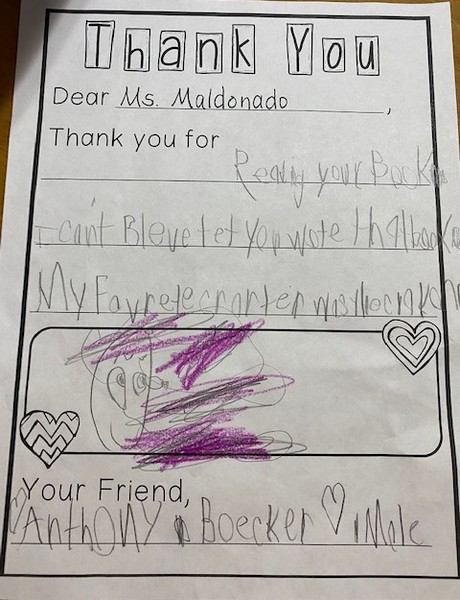 Thank You
Dear Ms. Maldonado,
Thank you for
Readig your Book
I can't Bleve tet you wote that book
My Favrete crarter was the
Your Friend,
Anthony Boecker